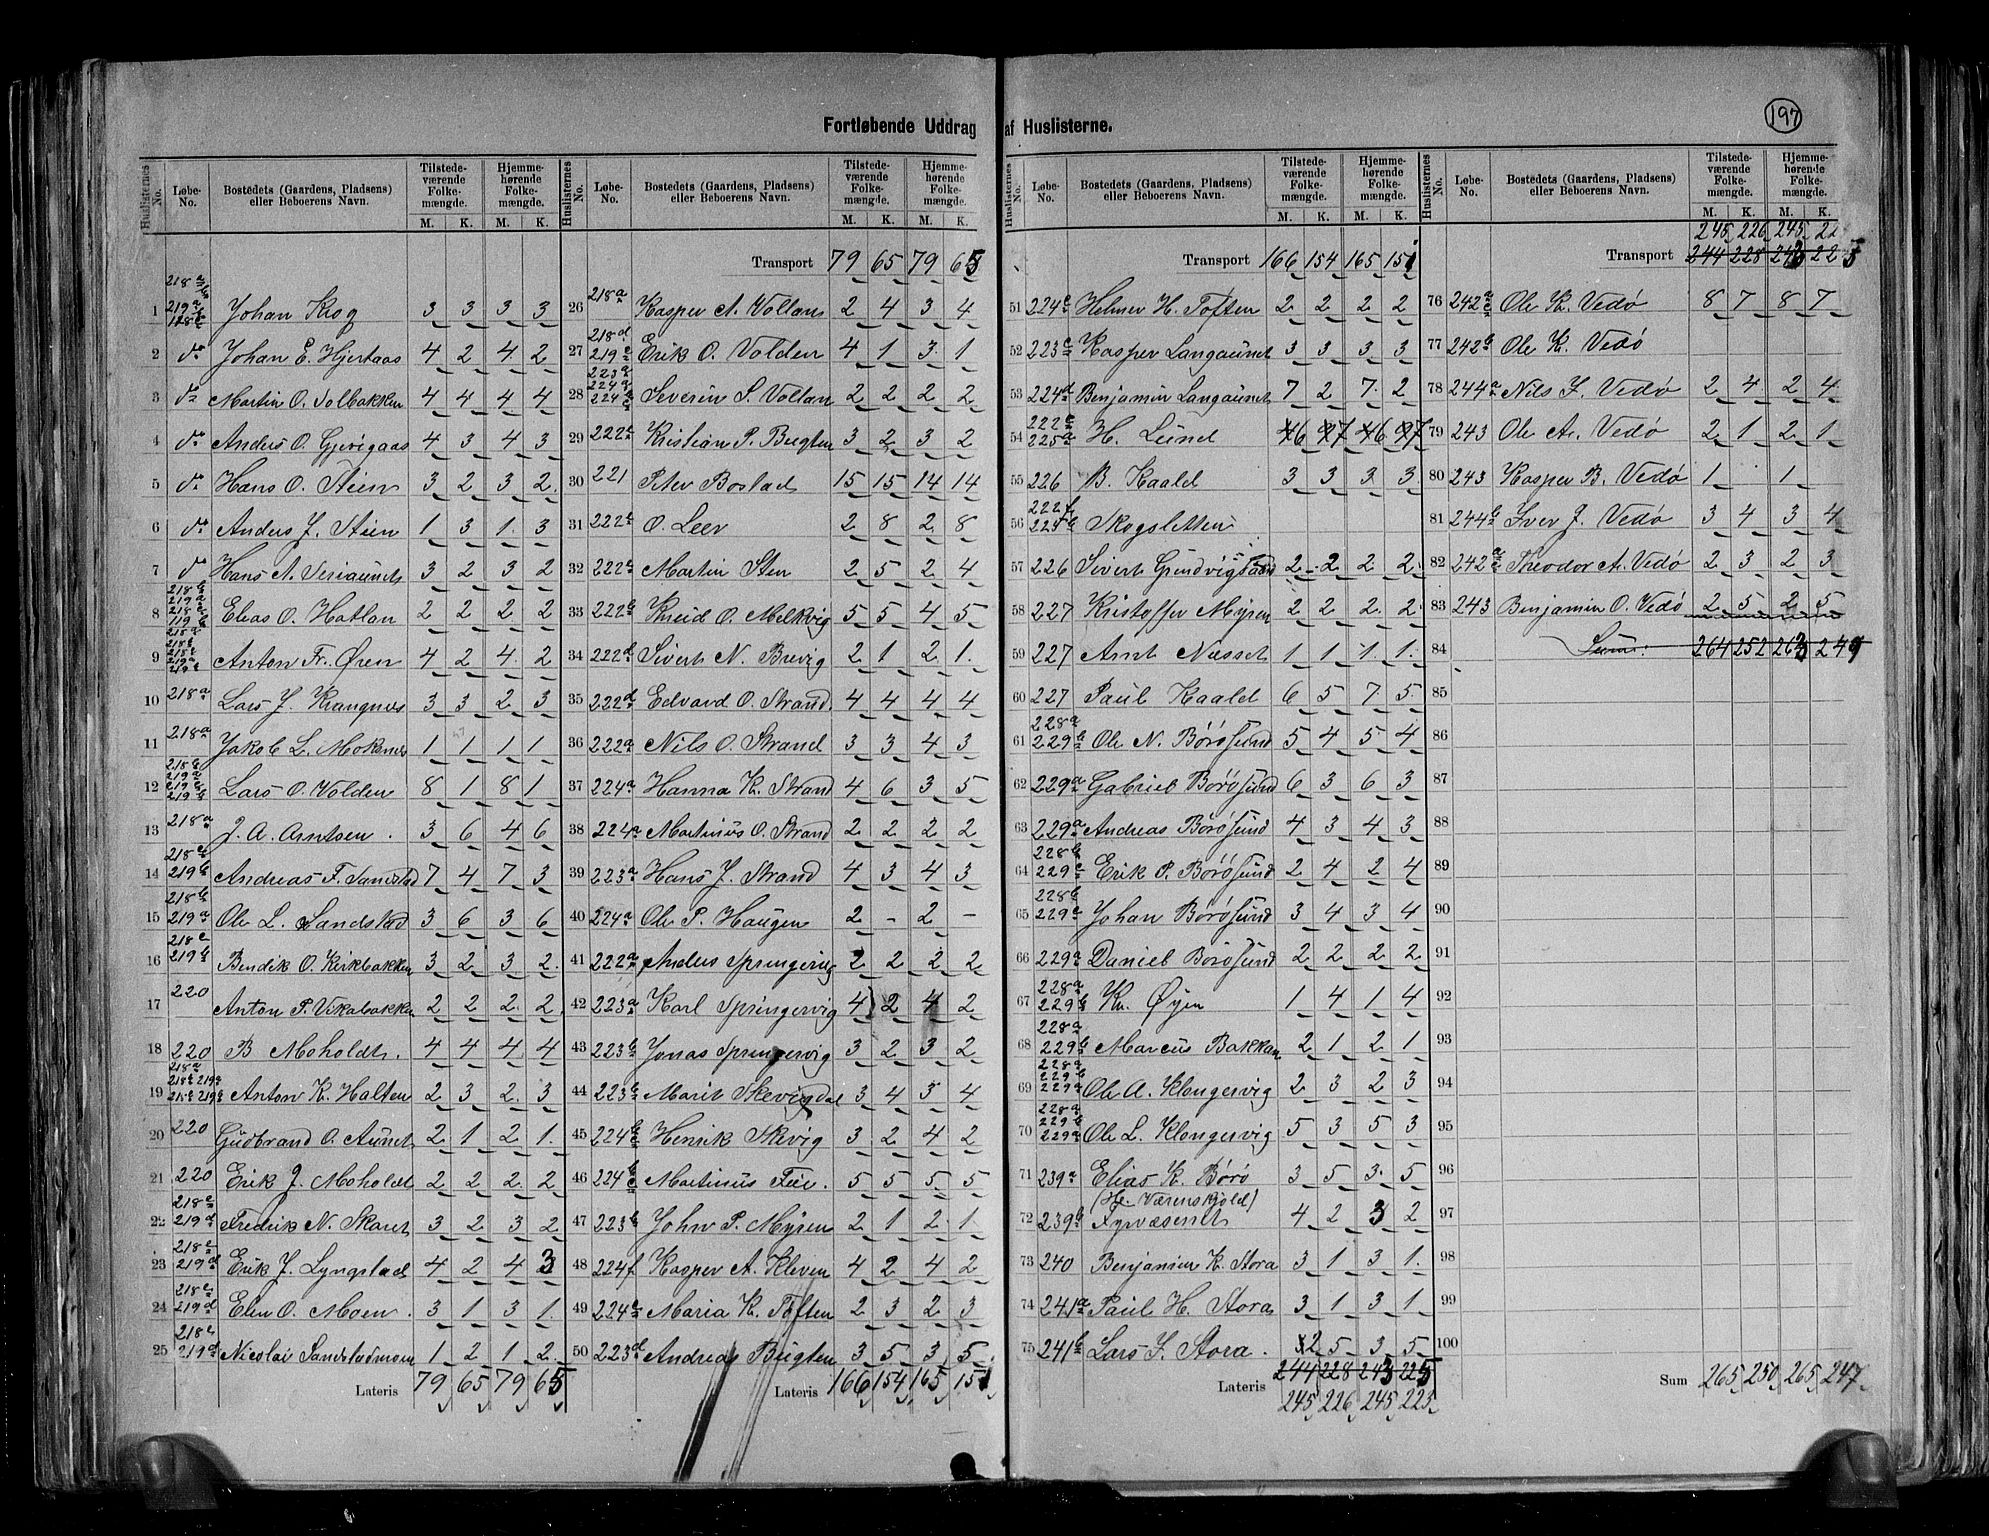 197
Fortløbende Uddrag af Huslisterne.
Huslisternes No. Løbe-No. Bostedets (Gaardens, Pladsens) eller Beboerens Navn. Tilstede-værende Folke-mængde. M. K. Hjemme-hørende Folke-mængde. M. K.
1 Johan Krog 3 3 3 3
2 do Johan E. Hjertaas 4 2 4 2
3 do Martin O. Solbakken 4 4 4 4
4 do Anders O. Gjevigaas 4 3 4 3
5 do Hans O. Stien 3 2 3 2
6 do Anders J. Stien 1 3 1 3
7 do Hans A. 3 2 3 2
8 Elias O. Hatlan 2 2 2 2
9 Anton Fr. Øren 4 2 4 2
10 218a Lars J. Krangnes 3 3 2 3
11 218a Jakob L. Moksnes 1 1 1 1
12 Lars O. Volden 8 1 8 1
13 218a J. A. Arntsen 3 6 4 6
14 219b Andreas F. Sandstad 7 4 7 3
15 218b 219a Ole L. Sandstad 3 6 3 6
16 218c 219b Bendik O. Kirkbakken 3 2 3 2
17 220 Anton P. Vikabakken 2 2 2 2
18 220 B Moholdt. 4 4 4 4
19 Anton K. Halten 2 3 2 3
20 220 Gudbrand O. Aunet 2 1 2 1
21 220 Erik J. Moholdt 2 2 2 2
22 218c 219d Fredrik N. Skaret 3 2 3 2
23 218c 219d Erik J. Lyngstad 4 2 4 3
24 218c 219d Elen O. Moen 3 1 3 1
25 218c 219d Nicolai Sandstadmoen 1 2 1 2
Lateris 79 65 79 65
Huslisternes No. Løbe-No. Bostedets (Gaardens, Pladsens) eller Beboerens Navn. Tilstede-værende Folke-mængde. M. K. Hjemme-hørende Folke-mængde. M. K.
Transport 79 65 79 65
26 218a Kasper A. Vollan 2 4 3 4
27 218d 219c Erik O. Volden 4 1 3 1
28 Severin S. Vollan 2 2 2 2
29 222c Kristian P. Bugten 3 2 3 2
30 221 Peter Bostad 15 15 14 14
31 O. Leer 2 8 2 8
32 222a Martin Sten 2 5 2 4
33 222b Knud O. Melkvig 5 5 4 5
34 222d Sivert N. Brevig 2 1 2 1
35 222d Edvard O. Strand 4 4 4 4
36 222a Nils O. Strand 3 3 4 3
37 224a Hanna K. Strand 4 6 3 5
38 224a Martinus O. Strand 2 2 2 2
39 223a Hans J. Strand 4 3 4 3
40 224a Ole P. Haugen 2 - 2 -
41 222a Anders Springervig 2 2 2 2
42 223a Karl Springervig 4 2 4 2
43 223b Jonas Springervig 3 2 3 2
44 223b Marit Skevigdal 3 4 3 4
45 Henrik Skevig 3 2 4 2
46 Martinus Feie 5 5 5 5
47 223b John P. Myren 2 1 2 1
48 224f Kasper A. Kleven 4 2 4 2
49 224e Maria K. Toften 2 3 2 3
50 223d Andreas Bugten 3 5 3 5
Lateris 166 154 165 151
Huslisternes No. Løbe-No. Bostedets (Gaardens, Pladsens) eller Beboerens Navn. Tilstede-værende Folke-mængde. M. K. Hjemme-hørende Folke-mængde. M. K.
Transport 166 154 165 151
51 224e Helmer H. Toften 2 2 2 2
52 223c Kasper Langaunet 3 3 3 3
53 224d Benjamin Langaunet 7 2 7 2
54 225a H. Lund 6 7 6 7
55 226 B. Kaald 3 3 3 3
56 222f Skogsletten
57 226 Sivert Gundvigsaand 2 2 2 2
58 227 Kristoffer Myren 2 2 2 2
59 227 Arnt Næsset 1 1 1 1
60 227 Paul Kaald 6 5 7 5
61 228a 229b Ole N. Børøsund 5 4 5 4
62 229a Gabriel Børøsund 6 3 6 3
63 229a Andreas Børøsund 4 3 4 3
64 228b 229c Erik P. Børøsund 2 4 2 4
65 228b Johan Børøsund 3 4 3 4
66 229a Daniel Børøsund 2 2 2 2
67 228a 229b Kn. Øyen 1 4 1 4
68 228a 229b Marcus Bakkan 2 1 2 1
69 228a 229b 229a Ole A. Klengervig 2 3 2 3
70 228a 229b 229a Ole L. Klengervig 5 3 5 3
71 239a Elias K. Børø 3 5 3 5
(H. Værenskjold)
72 239b Fyrvæsenet 4 2 3 2
73 240 Benjamin K. Stora 3 1 3 1
74 241a Paul H. Stora 3 1 3 1
75 241b Lars J. Stora 2 5 3 5
Lateris 244 228 243 225
245 226 245 223
Huslisternes No. Løbe-No. Bostedets (Gaardens, Pladsens) eller Beboerens Navn. Tilstede-værende Folke-mængde. M. K. Hjemme-hørende Folke-mængde. M. K.
245 226 245
Transport 244 228 243 225
76 Ole K. Vedø 8 7 8 7
77 242b Ole K. Vedø
78 244a Nils J. Vedø 2 4 2 4
79 243 Ole A. Vedø 2 1 2 1
80 243 Kasper B. Vedø 1 1
81 244b Iver J. Vedø 3 4 3 4
82 Theodor A. Vedø 2 3 2 3
83 243 Benjamin O. Vedø 2 5 2 5
84 Sum: 264 252 263 249
85
86
87
88
89
90
91
92
93
94
95
96
97
98
99
100
Sum 265 250 265 247